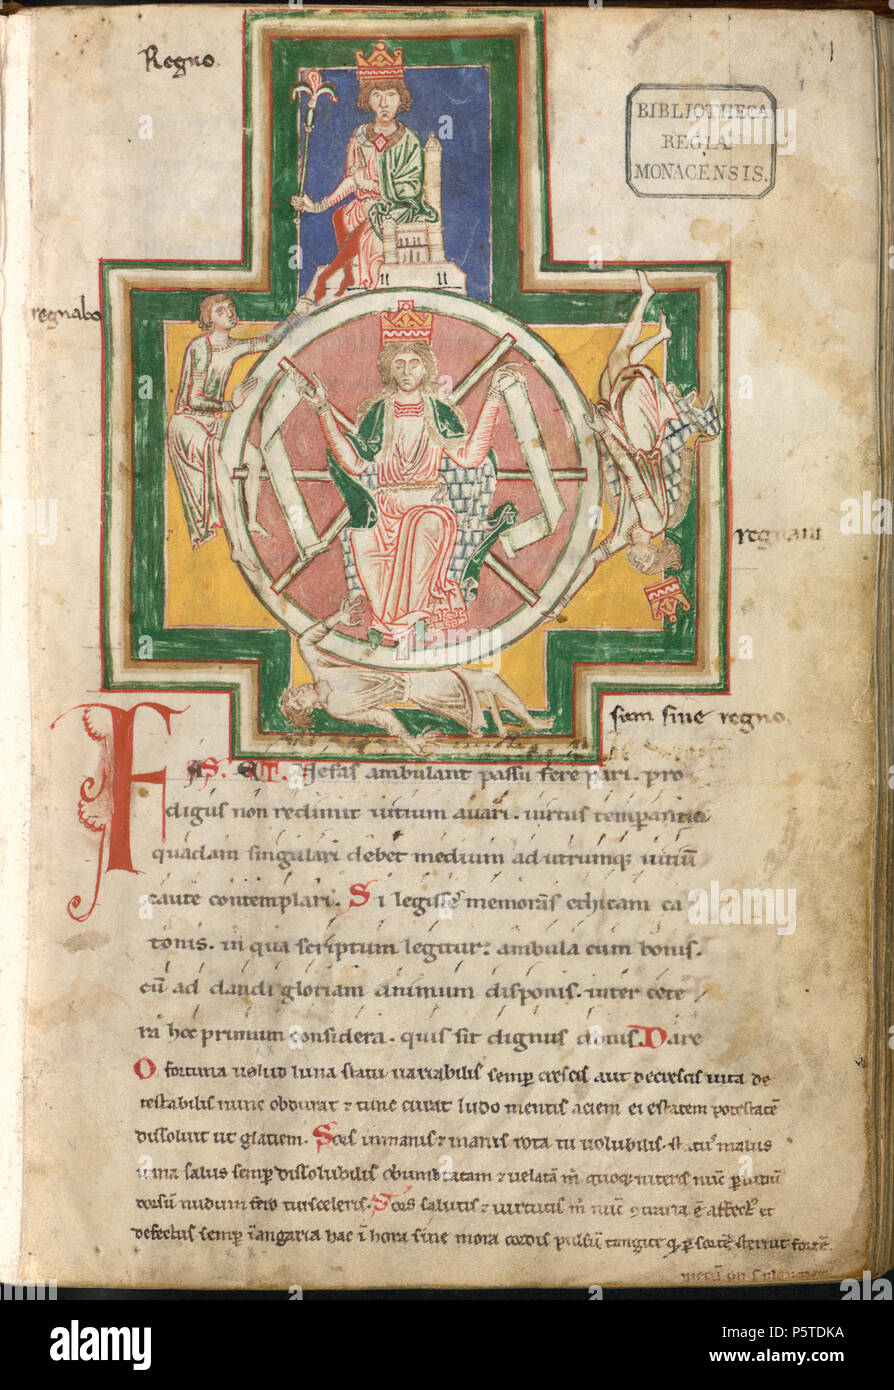 Regno.
1
BIBLIOTHECA
REGIA
MONACENSIS.
regnabo
regnaui
sum sine regno.
FAS. ET. Nefas ambulant passu fere pari. pro
digus non redimit uitium auari. uirtus temperantia
quadam singulari debet medium ad utrumq; uitiū
caute contemplari. Si legisse memoras ethicam ca
tonis. in qua scriptum legitur: ambula cum bonis.
cū ad dandi gloriam animum disponis. inter cete
ra hoc primum considera. quis sit dignus donis. Dare
O fortuna uelud luna statu uariabilis semp crescis aut decrescis uita de
testabilis nunc obdurat & tunc curat ludo mentis aciem egestatem potestatē
dissoluit ut glaciem. Sors immanis & inanis rota tu uolubilis. statꝰ malus
uana salus semp dissolubilis obumbratam & uelatā m quoq; niteris nūc p ludū
dorsū nudum fero tui sceleris. Sors salutis & uirtutis m nūc ꝯtraria ē affectꝰ et
defectus semp ī angaria hac ī hora sine mora cordis pulsū tangite q p sortē sternit fortē
mecū om̄s
a
alamy
a
a
alamy stock photo
P5TDKA
www.alamy.com